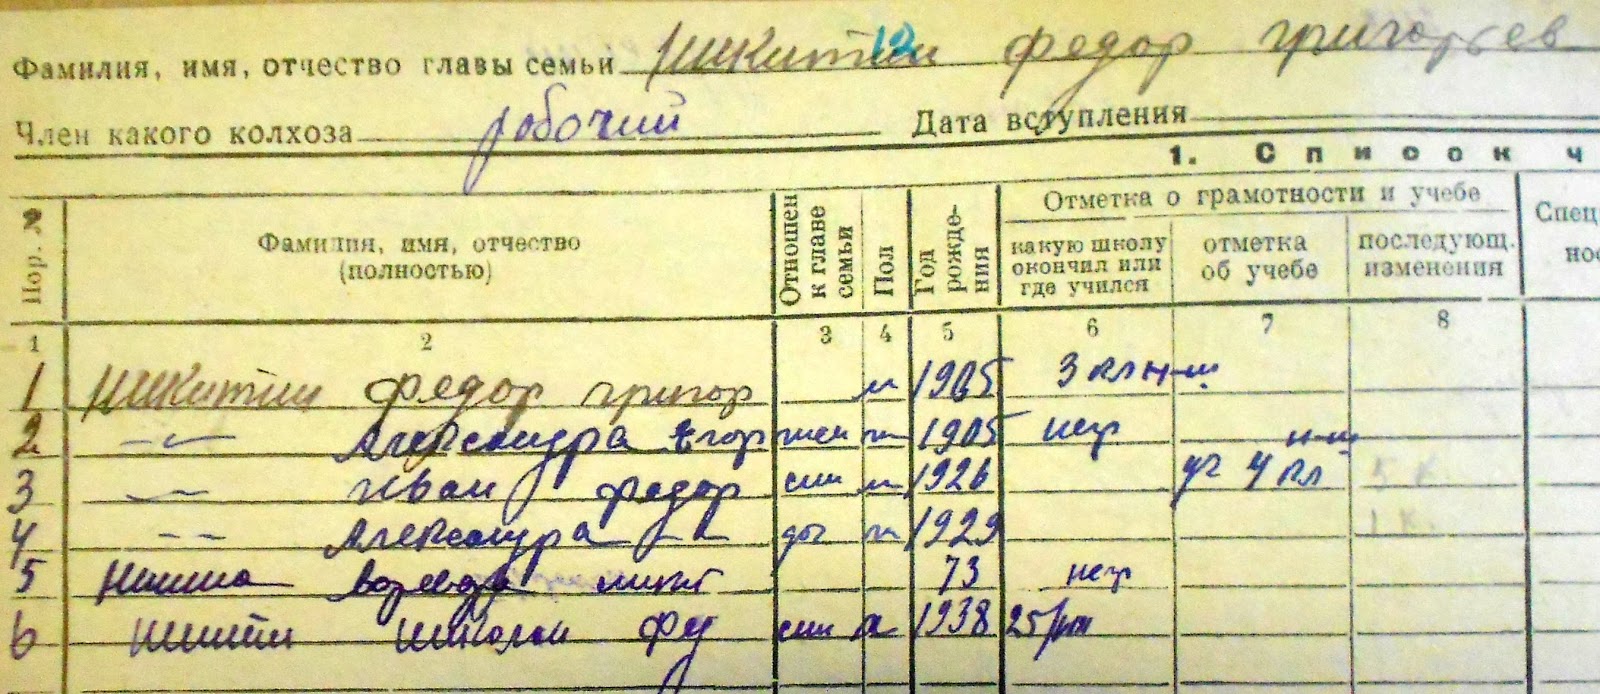 Фамилия, имя, отчество главы семьи Никитин Федор Григорьев
12
Член какого колхоза робочий Дата вступления
1. Список ч
Пор. № Фамилия, имя, отчество (полностью) Отношен к главе семьи Пол Год рожде- ния Отметка о грамотности и учебе Спец
какую школу окончил или где учился отметка об учебе последующ. изменения нос
1 2 3 4 5 6 7 8
1 Никитин Федор Григор м 1905 3 кл н-ш
2 —〃— Александра Егор жен ж 1905 негр
3 —〃— Иван Федор сын м 1926 уч 4 кл н-ш 5 к.
4 —〃— Александра —〃— доч ж 1929 1 к.
5 73 негр
6 Николай сын м 1938